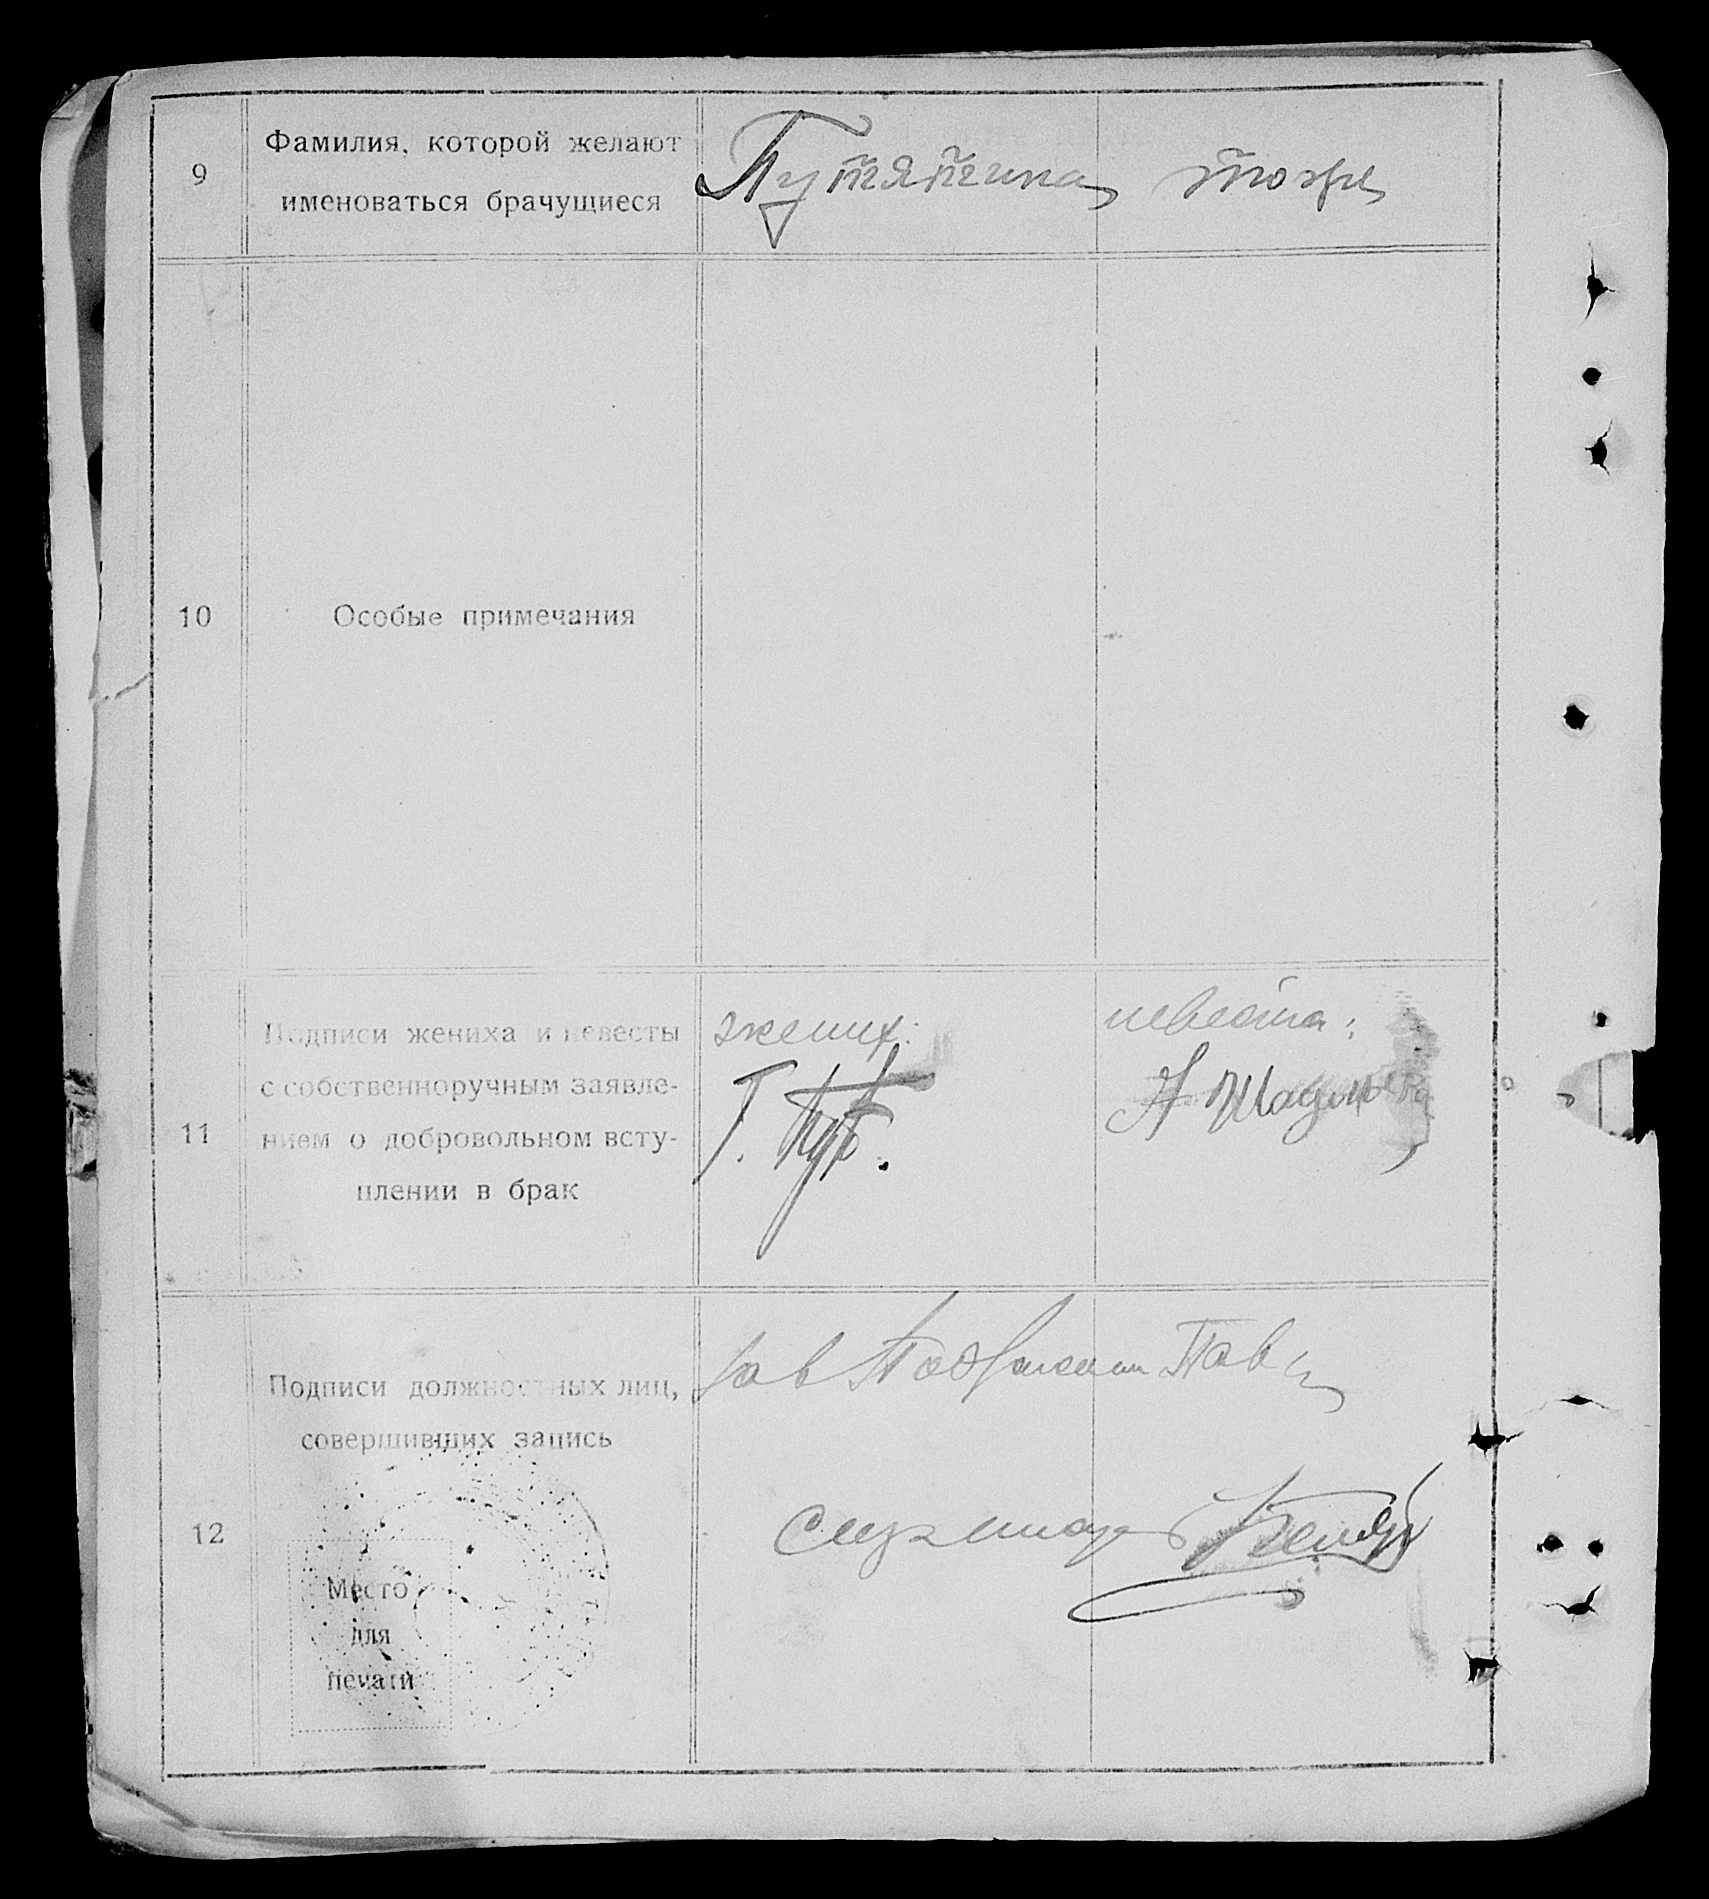 9
Фамилия, которой желают
именоваться брачущиеся
Путятина
тоже
10
Особые примечания
11
Подписи жениха и невесты
с собственноручным заявле-
нием о добровольном всту-
плении в брак
жених:
Г. Пут.
невеста:
12
Подписи должностных лиц,
совершивших запись
Место
для
печати
зав